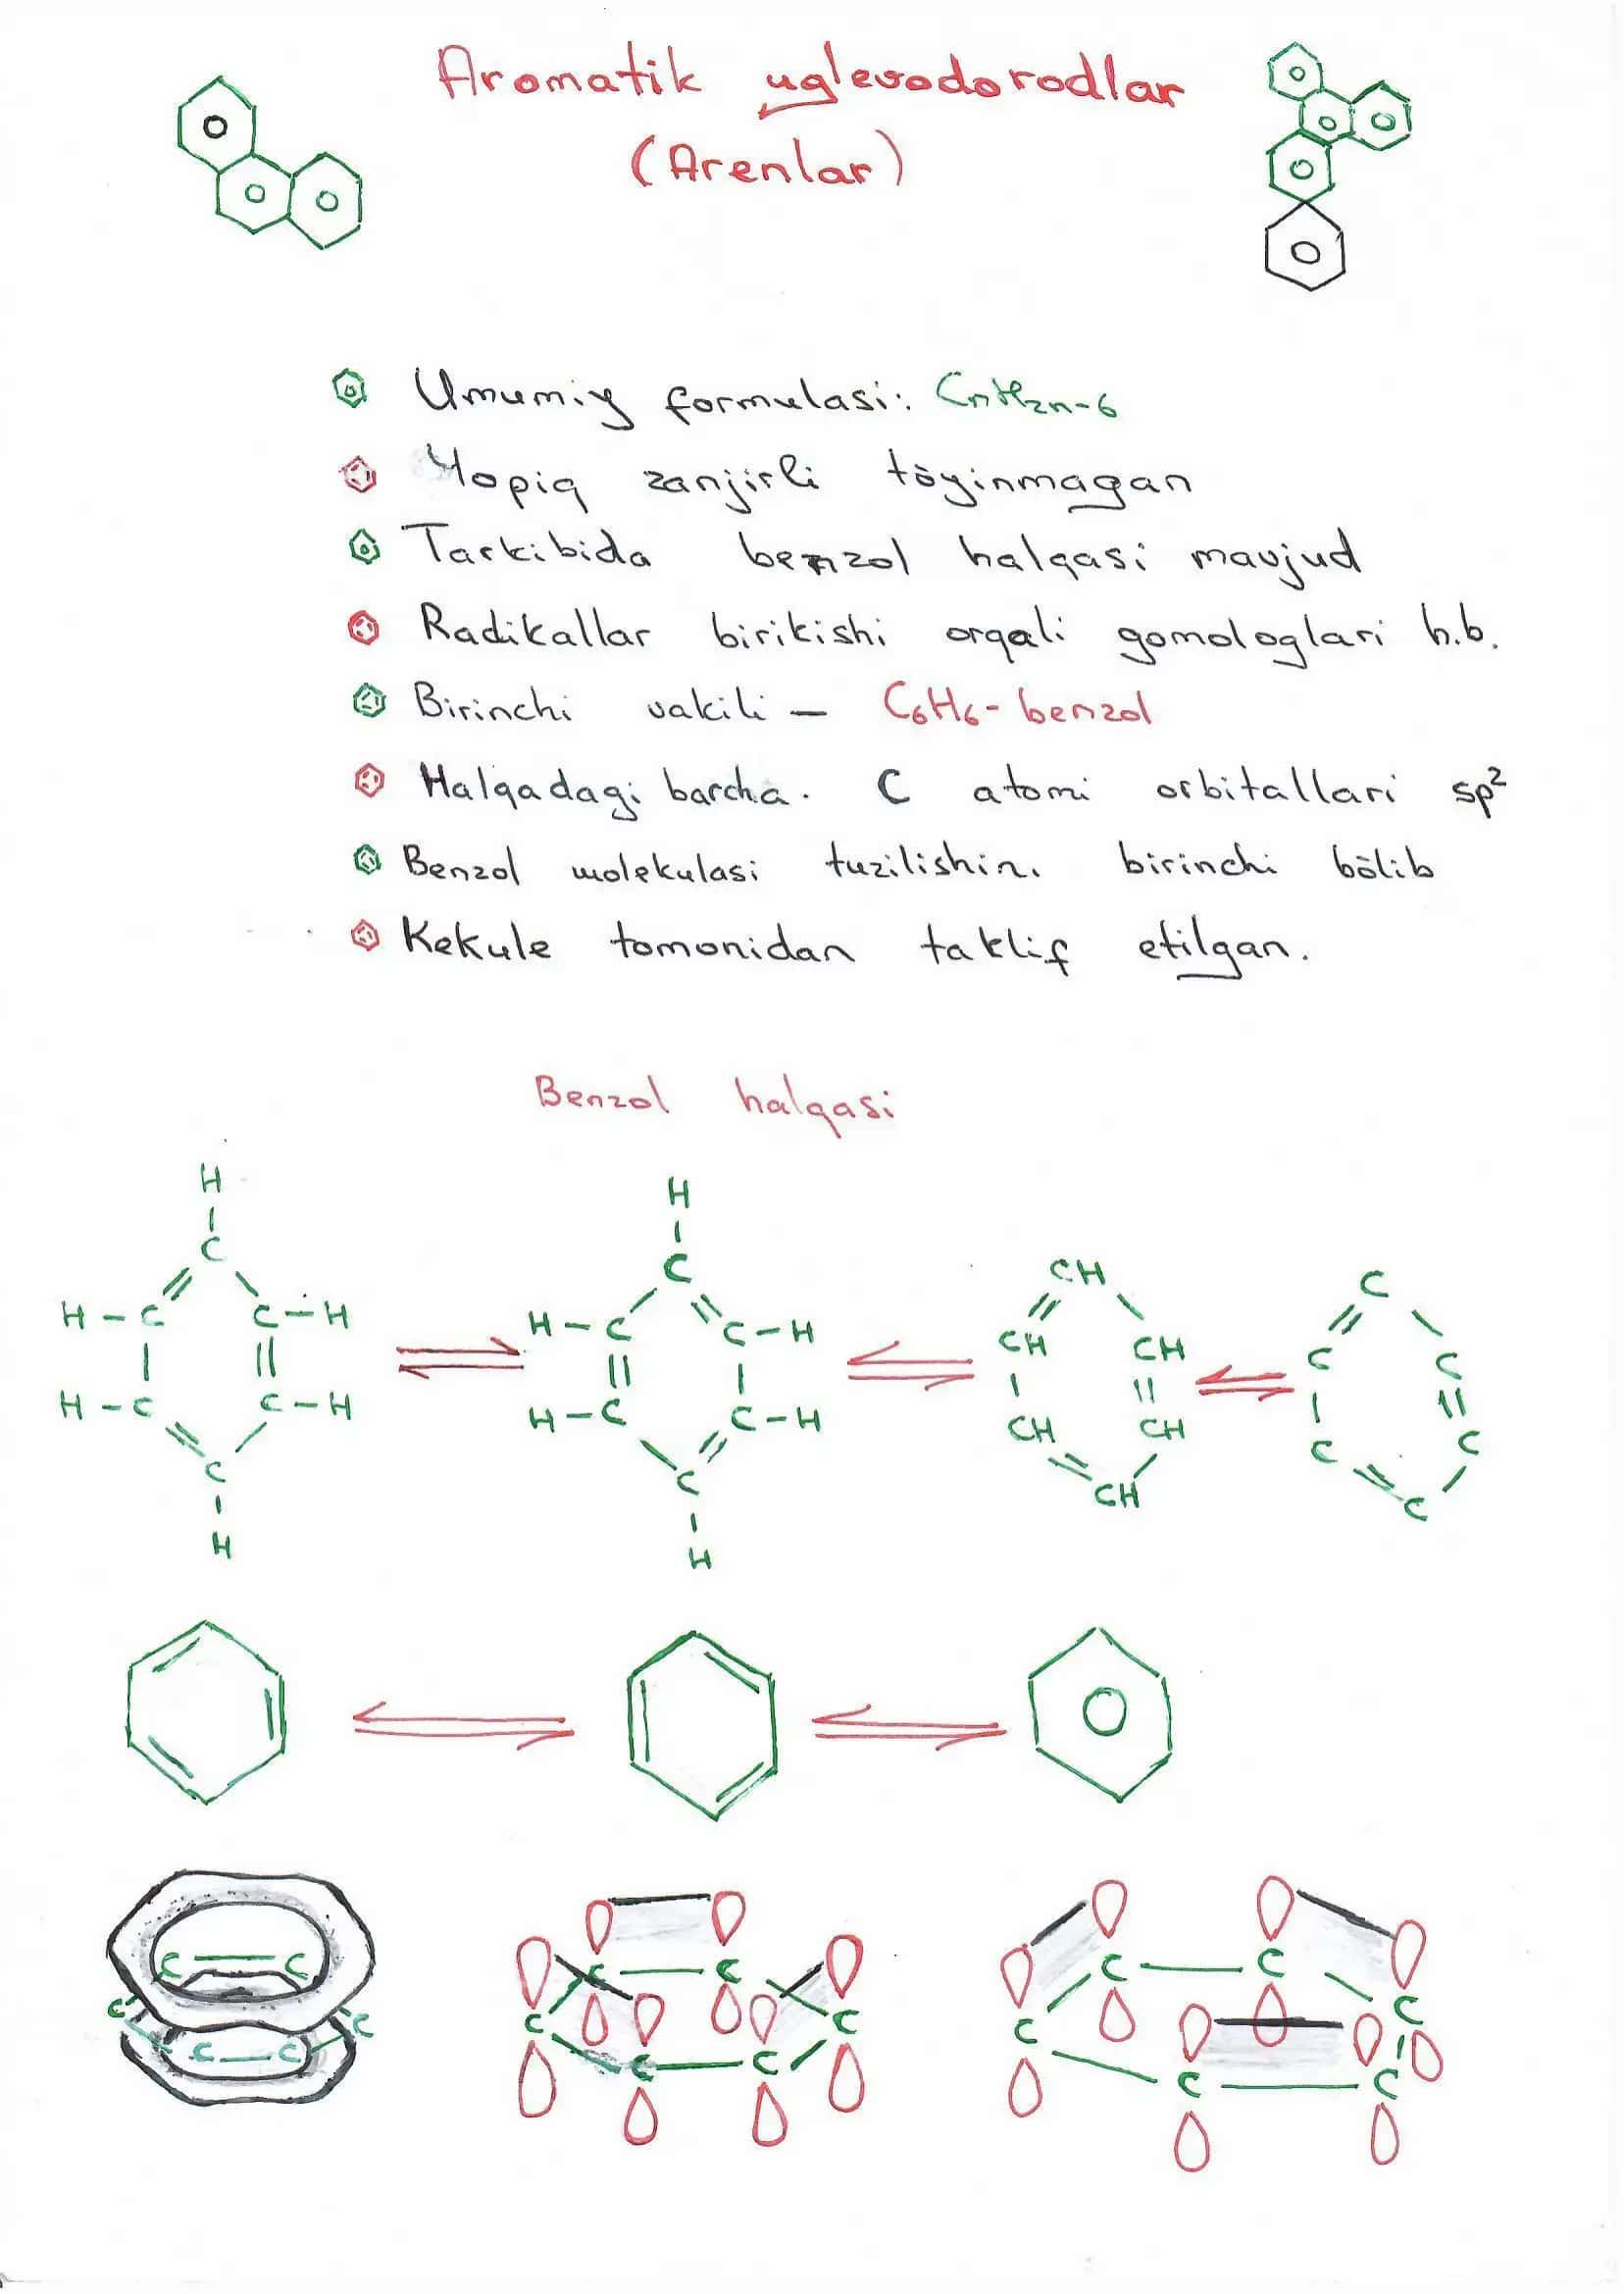 Aromatik uglevodorodlar
(Arenlar)
Umumiy formulasi: CnH2n-6
Yopiq zanjirli töyinmagan
Tarkibida benzol halqasi mavjud
Radikallar birikishi orqali gomologlari h.b.
Birinchi vakili – C6H6 - benzol
Halqadagi barcha. C atomi orbitallari sp²
Benzol molekulasi tuzilishini birinchi bölib
Kekule tomonidan taklif etilgan.
Benzol halqasi
H H
C C CH C
H-C C-H H-C C-H CH CH C C
H-C C-H H-C C-H CH CH C C
C C CH C
H H
C C C C C C
C C C C C C
C C C C C C